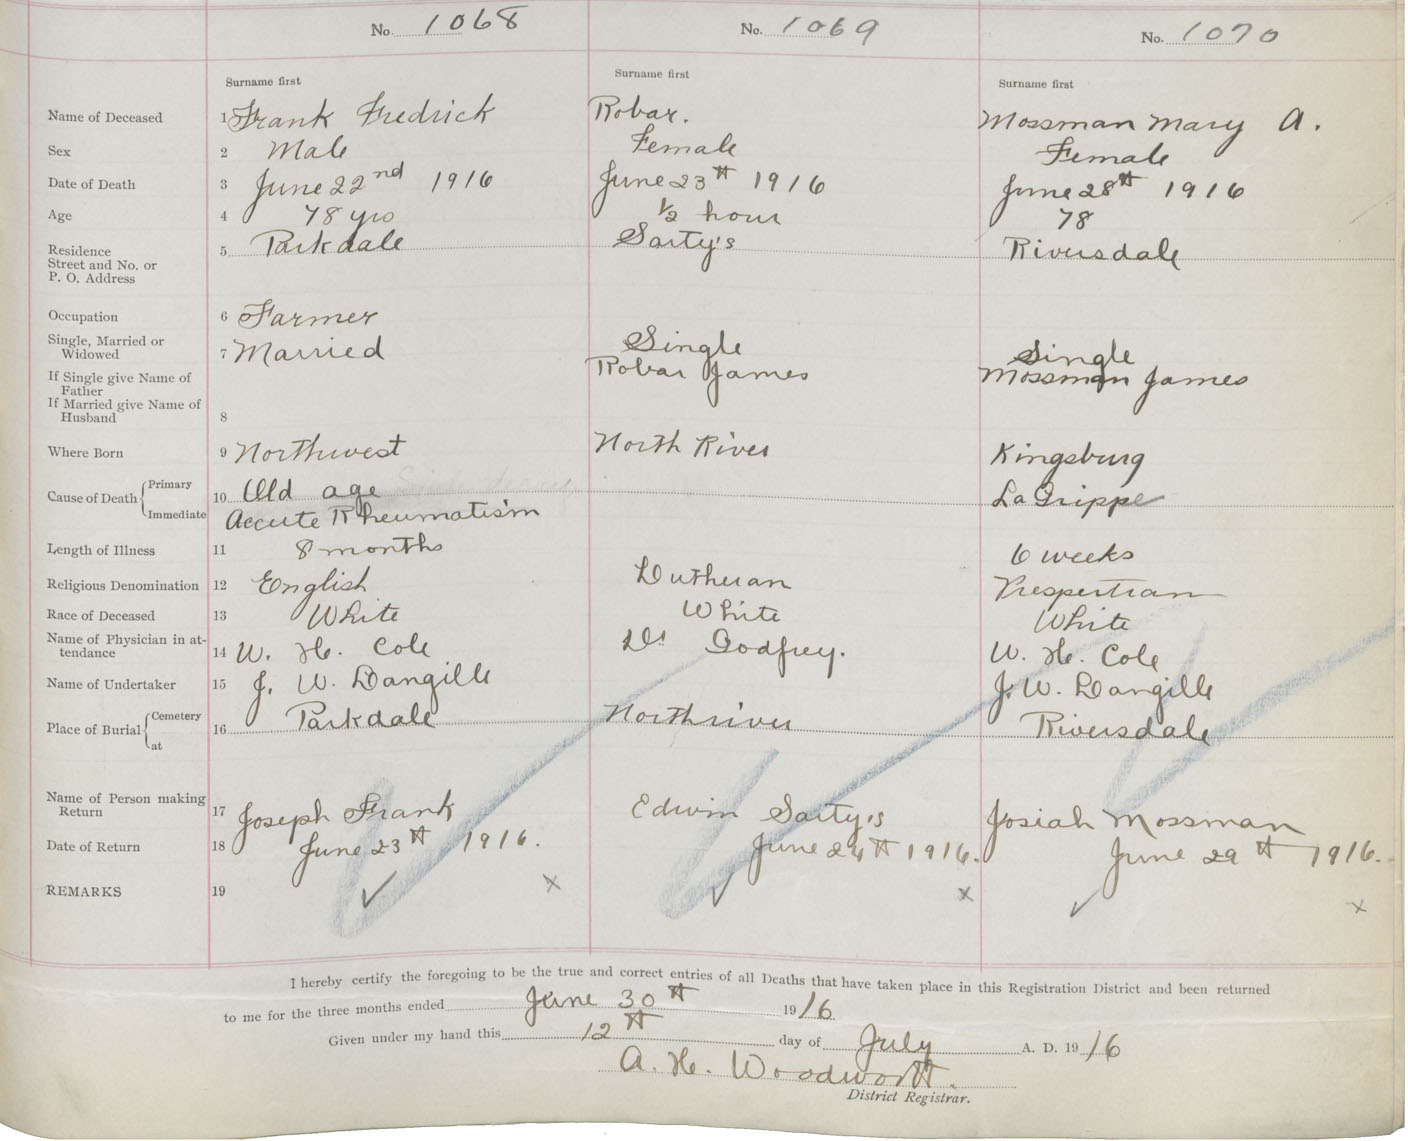 No. 1068 No. 1069 No. 1070
Surname first Surname first Surname first
Name of Deceased 1 Frank Fredrick Robar. Mossman Mary A.
Sex 2 Male Female Female
Date of Death 3 June 22nd 1916 June 23th 1916 June 28th 1916
Age 4 78 yrs 1/2 hour 78
Residence
Street and No. or
P. O. Address 5 Parkdale Sarty's Riversdale
Occupation 6 Farmer
Single, Married or
Widowed 7 Married Single Single
If Single give Name of
Father Robar James Mossman James
If Married give Name of
Husband 8
Where Born 9 Northwest North River Kingsburg
Cause of Death { Primary 10 Old age La Grippe
Immediate Accute Rheumatism
Length of Illness 11 8 months 6 weeks
Religious Denomination 12 English Lutheran Prespertian
Race of Deceased 13 White White White
Name of Physician in at-
tendance 14 W. H. Cole Dr Godfrey. W. H. Cole
Name of Undertaker 15 J. W. Dangille J. W. Dangille
Place of Burial { Cemetery
at 16 Parkdale Northriver Riversdale
Name of Person making
Return 17 Joseph Frank Edwin Sarty's Josiah Mossman
Date of Return 18 June 23th 1916. June 24th 1916. June 29th 1916.
REMARKS 19 ✓ x ✓ x ✓ x
I hereby certify the foregoing to be the true and correct entries of all Deaths that have taken place in this Registration District and been returned
to me for the three months ended June 30th 1916
Given under my hand this 12th day of July A. D. 1916
A. H. Woodworth.
District Registrar.